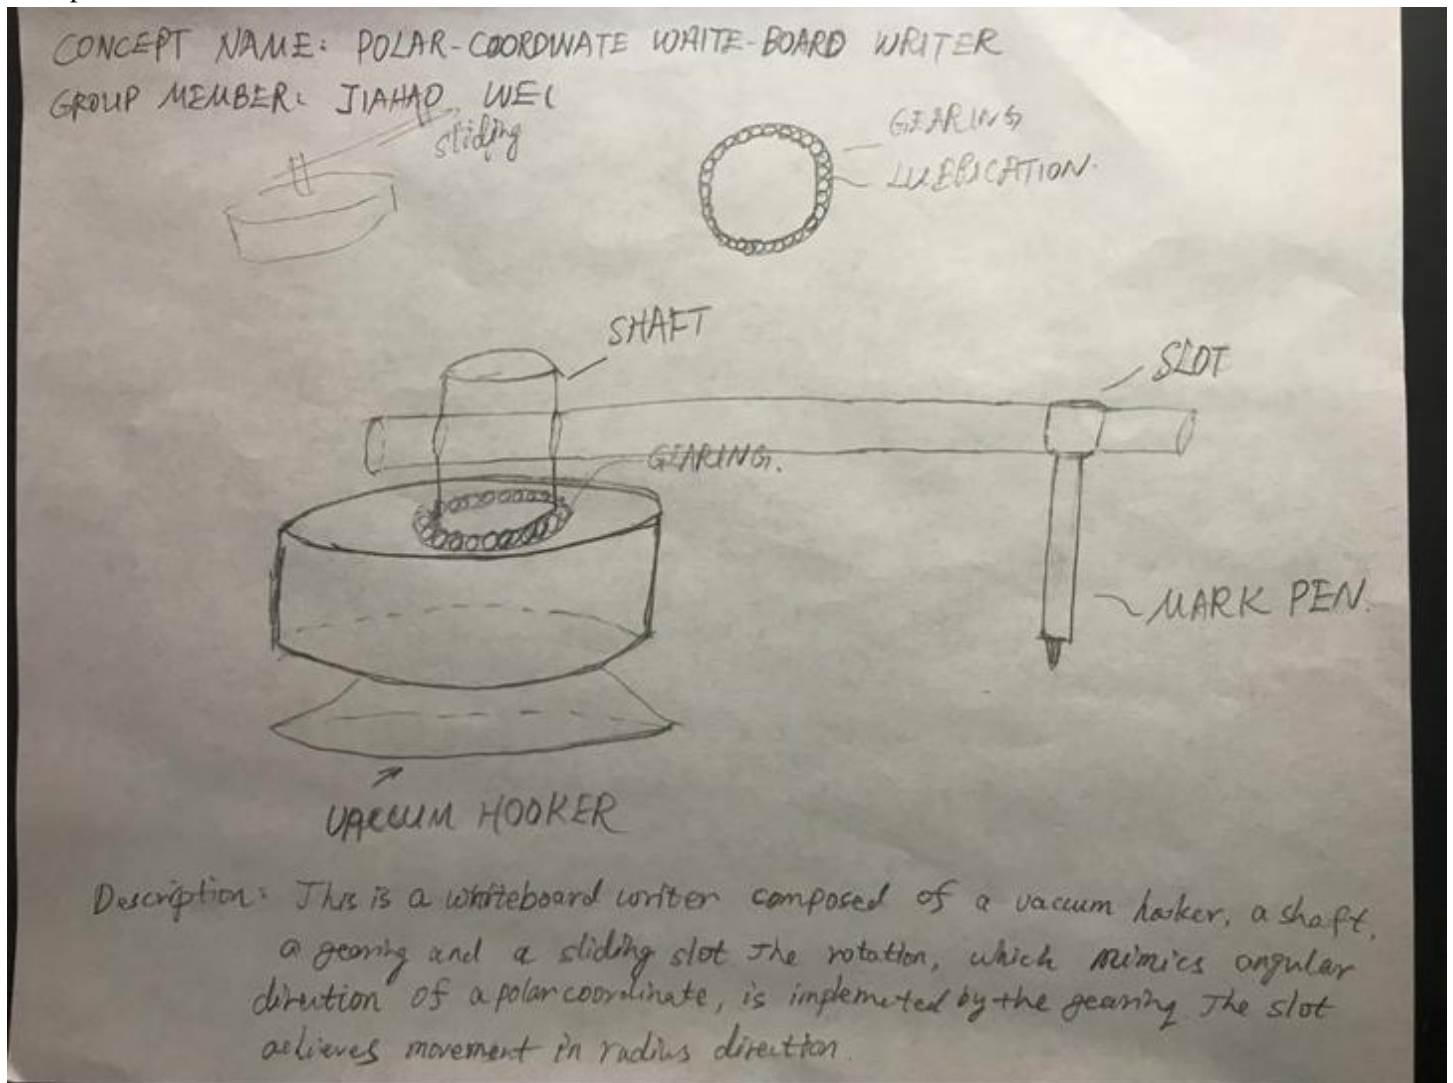 CONCEPT NAME: POLAR-COORDINATE WHITE-BOARD WRITER
GROUP MEMBER: JIAHAO WEI
sliding
GEARING
LUBRICATION.
SHAFT
SLOT
GEARING.
MARK PEN.
VACCUM HOOKER
Description: This is a whiteboard writer composed of a vaccum hooker, a shaft,
a gearing and a sliding slot The rotation, which mimics angular
direction of a polar coordinate, is implemeted by the gearing The slot
achieves movement in radius direction.